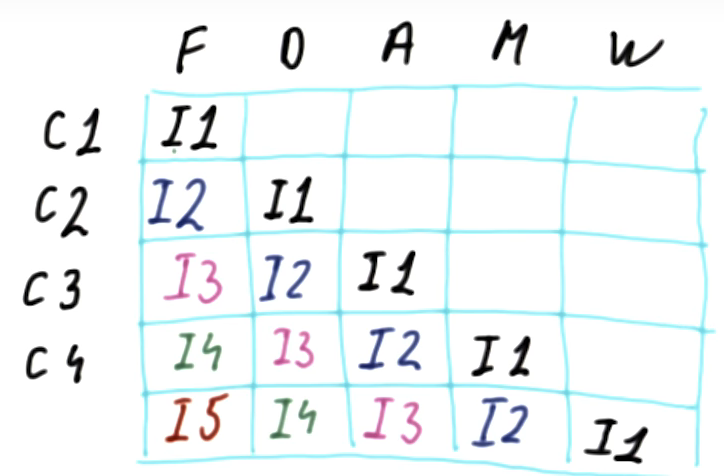 F D A M W
C1 I1
C2 I2 I1
C3 I3 I2 I1
C4 I4 I3 I2 I1
I5 I4 I3 I2 I1